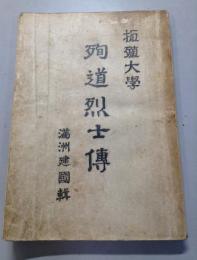 拓殖大學
殉道烈士傳
滿洲建國輯